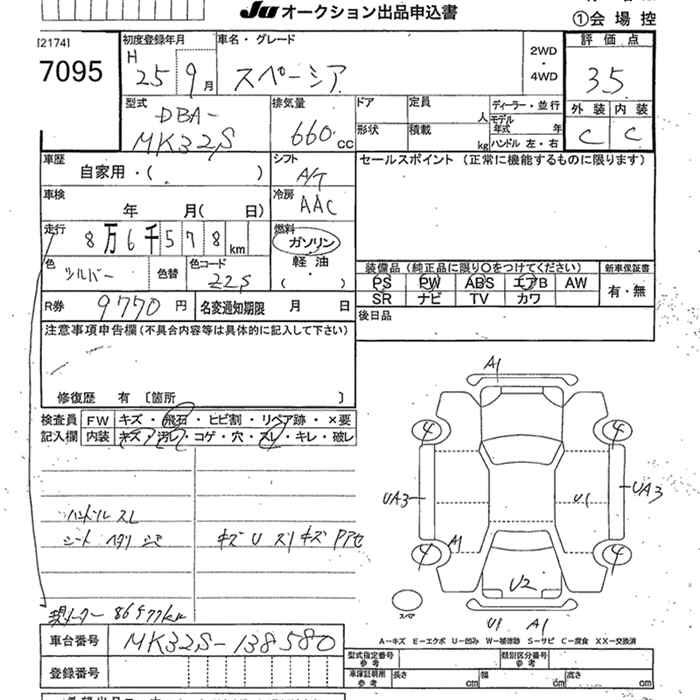 JU オークション出品申込書
①会場控
[2174]
7095
初度登録年月
H
25
9月
車名・グレード
スペーシア
2WD
・
4WD
評価点
3.5
外装
内装
C
C
型式
DBA-
MK32S
排気量
660 CC
ドア
定員
人
形状
積載
kg
ディーラー・並行
モデル
年式
年
ハンドル 左・右
車歴
自家用・( )
シフト
A/T
セールスポイント (正常に機能するものに限ります)
車検
年 月( 日)
冷房
AAC
走行
8万6千578km
燃料
ガソリン
軽油
( )
色
シルバー
色替
色コード
Z2S
装備品 (純正品に限り○をつけてください)
新車保証書
PS
PW
ABS
エアB
AW
有・無
SR
ナビ
TV
カワ
R券
9770円
名変通知期限
月 日
後日品
注意事項申告欄(不具合内容等は具体的に記入して下さい)
修復歴 有 〔箇所 〕
検査員
記入欄
FW
キズ・飛石・ヒビ割・リペア跡・×要
内装
キズ・汚レ・コゲ・穴・スレ・キレ・破レ
ハンドルスレ
シート ヘタリ シミ
キズ U スリキズ
現メーター 86577km
A1
4
4
UA3
U1
UA3
4
A1
4
U2
スペア
U1 A1
A−キズ E−エクボ U−凹み W−補修跡 S−サビ C−腐食 XX−交換済
車台番号
MK32S-138580
登録番号
型式指定番号
参考
類別区分番号
参考
車庫証明用
参考
長さ
cm
幅
cm
高さ
cm